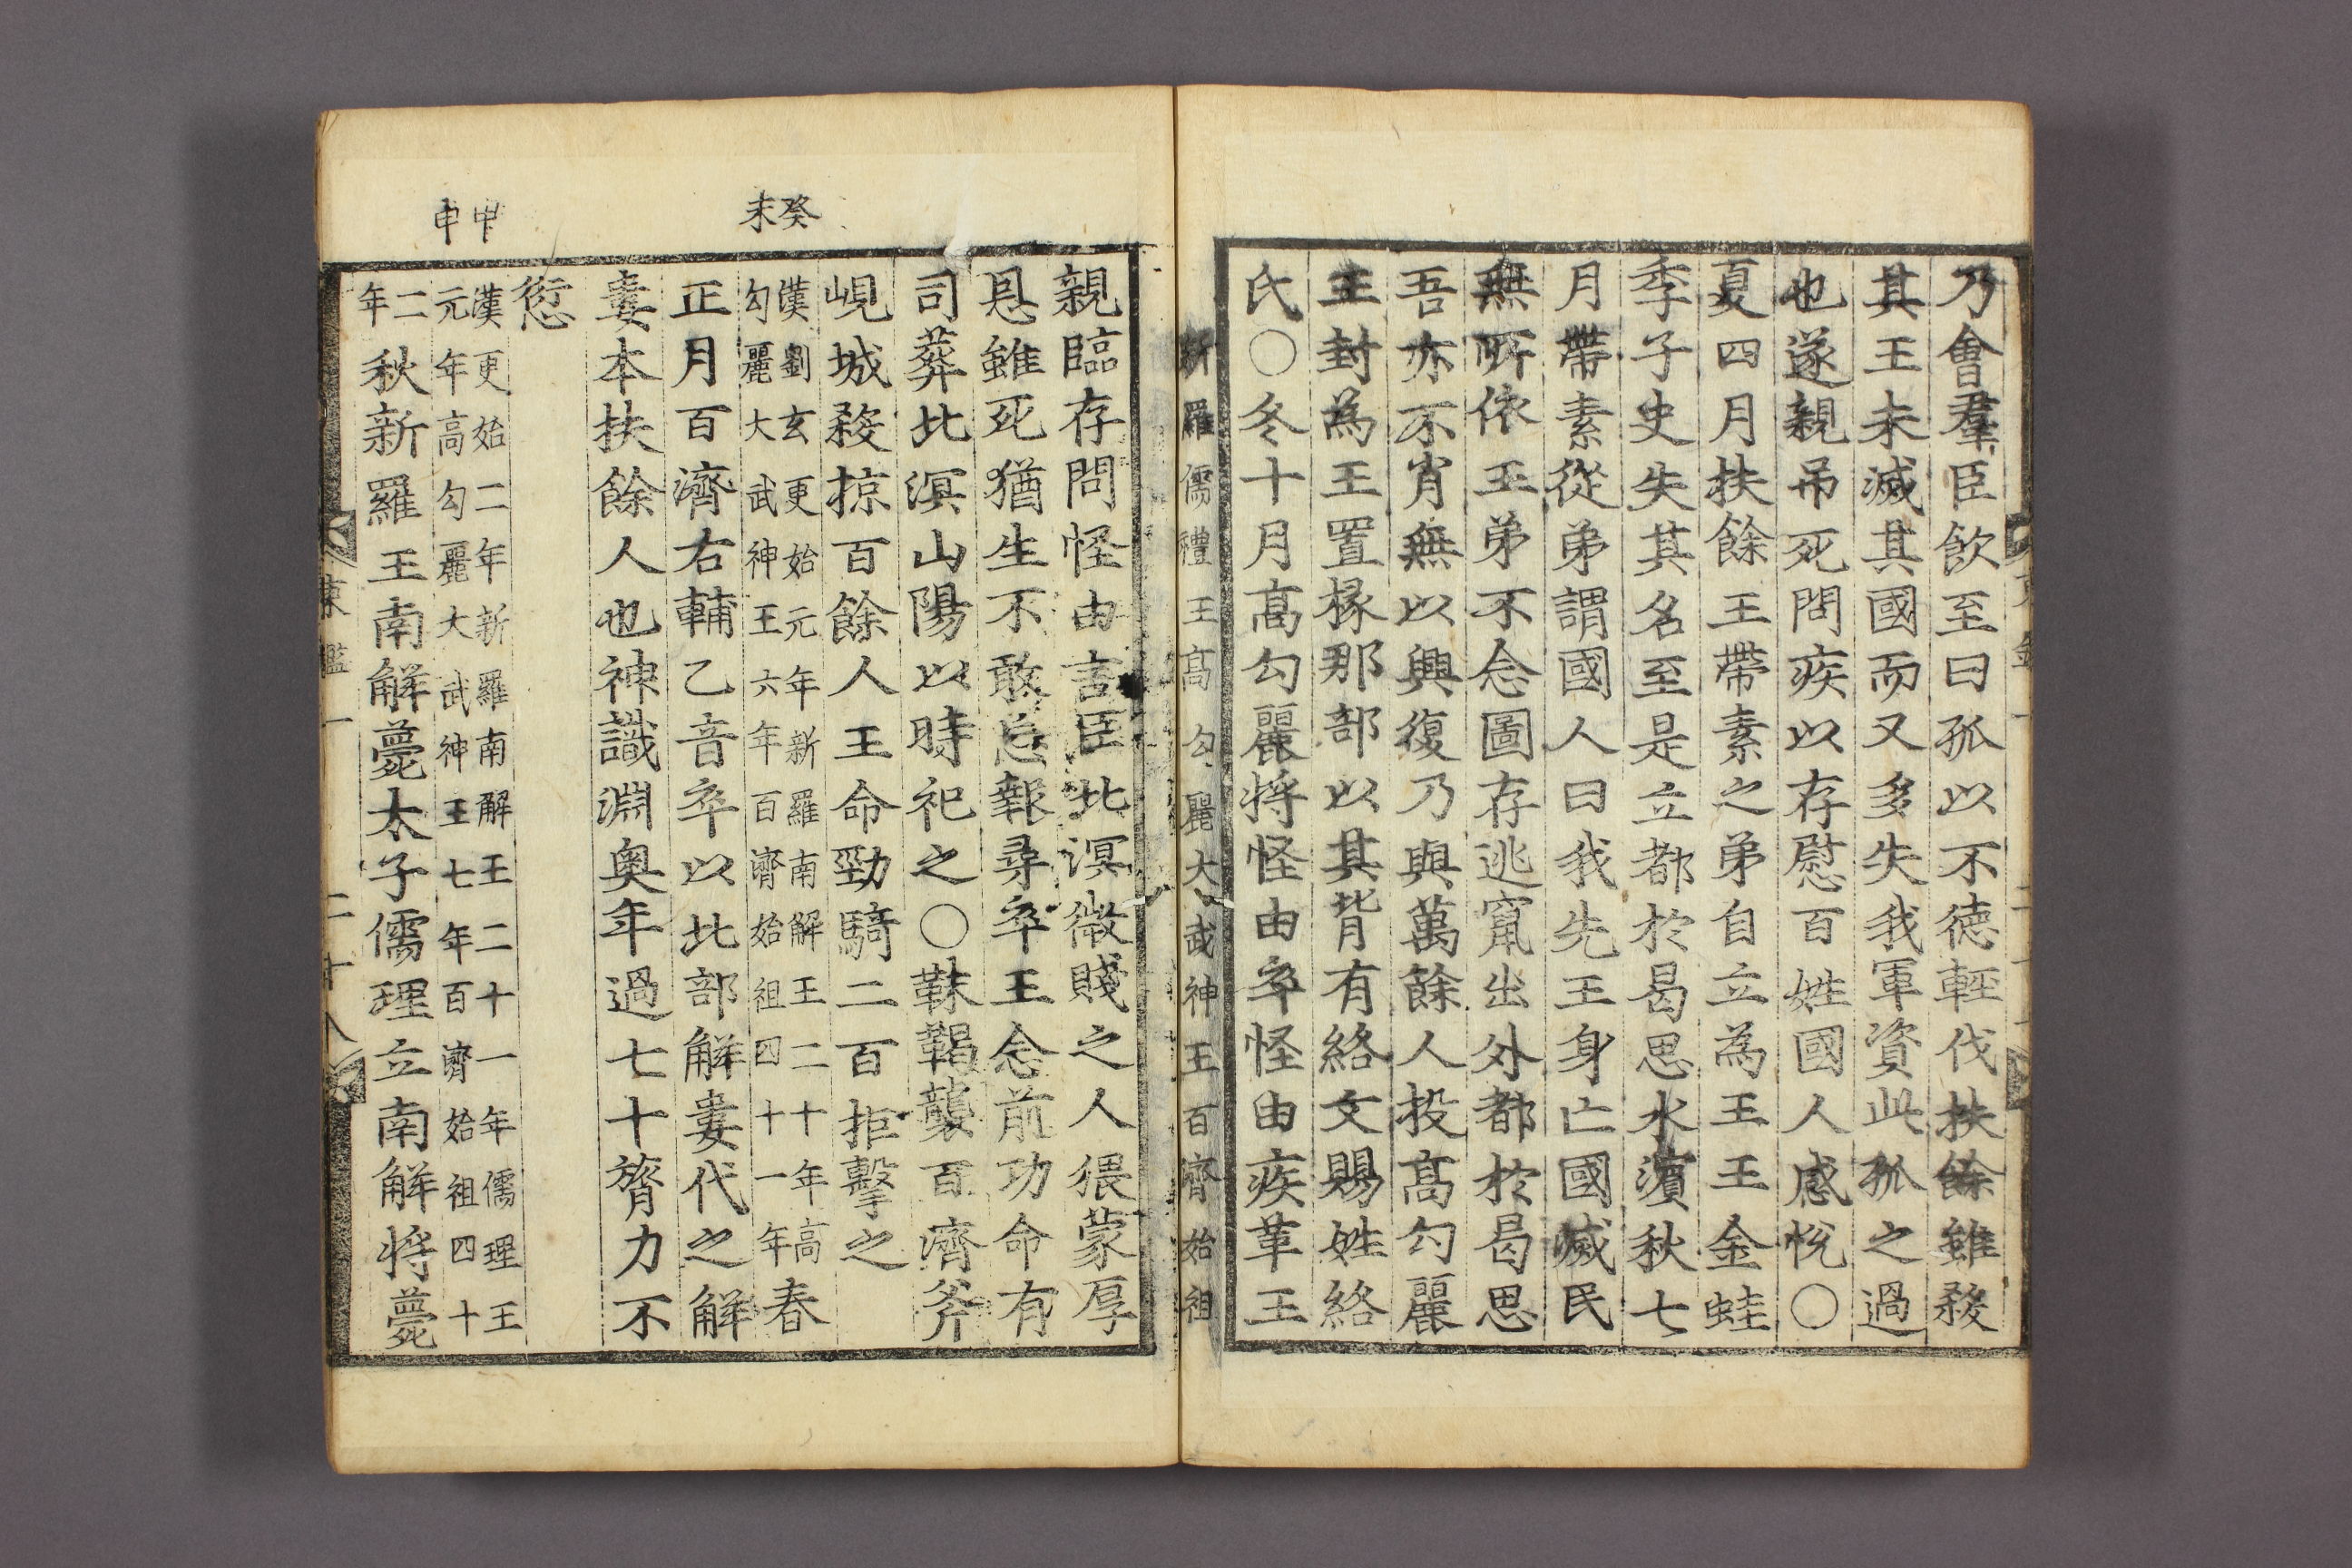 乃會羣臣飮至曰孤以不德輕伐扶餘雖殺
其王未滅其國而又多失我軍資此孤之過
也遂親吊死問疾以存慰百姓國人感悅〇
夏四月扶餘王帶素之弟自立爲王王金蛙
季子史失其名至是立都於曷思水濱秋七
月帶素從弟謂國人曰我先王身亡國滅民
無所依王弟不念圖存逃竄出外都於曷思
吾亦不肖無以興復乃與萬餘人投高勾麗
王封為王置椽那部以其背有絡文賜姓絡
氏〇冬十月高勾麗將怪由卒怪由疾革王
新羅儒禮王高勾麗大武神王百濟始祖
親臨存問怪由言臣北溟微賤之人猥蒙厚
恩雖死猶生不敢忘報尋卒王念前功命有
司葬北溟山陽以時祀之〇靺鞨襲百濟斧
峴城殺掠百餘人王命勁騎二百拒擊之
癸未
漢劉玄更始元年新羅南解王二十年高
勾麗大武神王六年百濟始祖四十一年
春
正月百濟右輔乙音卒以北部解婁代之解
婁本扶餘人也神識淵奧年過七十膂力不
愆
甲申
漢更始二年新羅南解王二十一年儒理王
元年高勾麗大武神王七年百濟始祖四十
二年
秋新羅王南解薨太子儒理立南解將薨
東鑑一
二十八